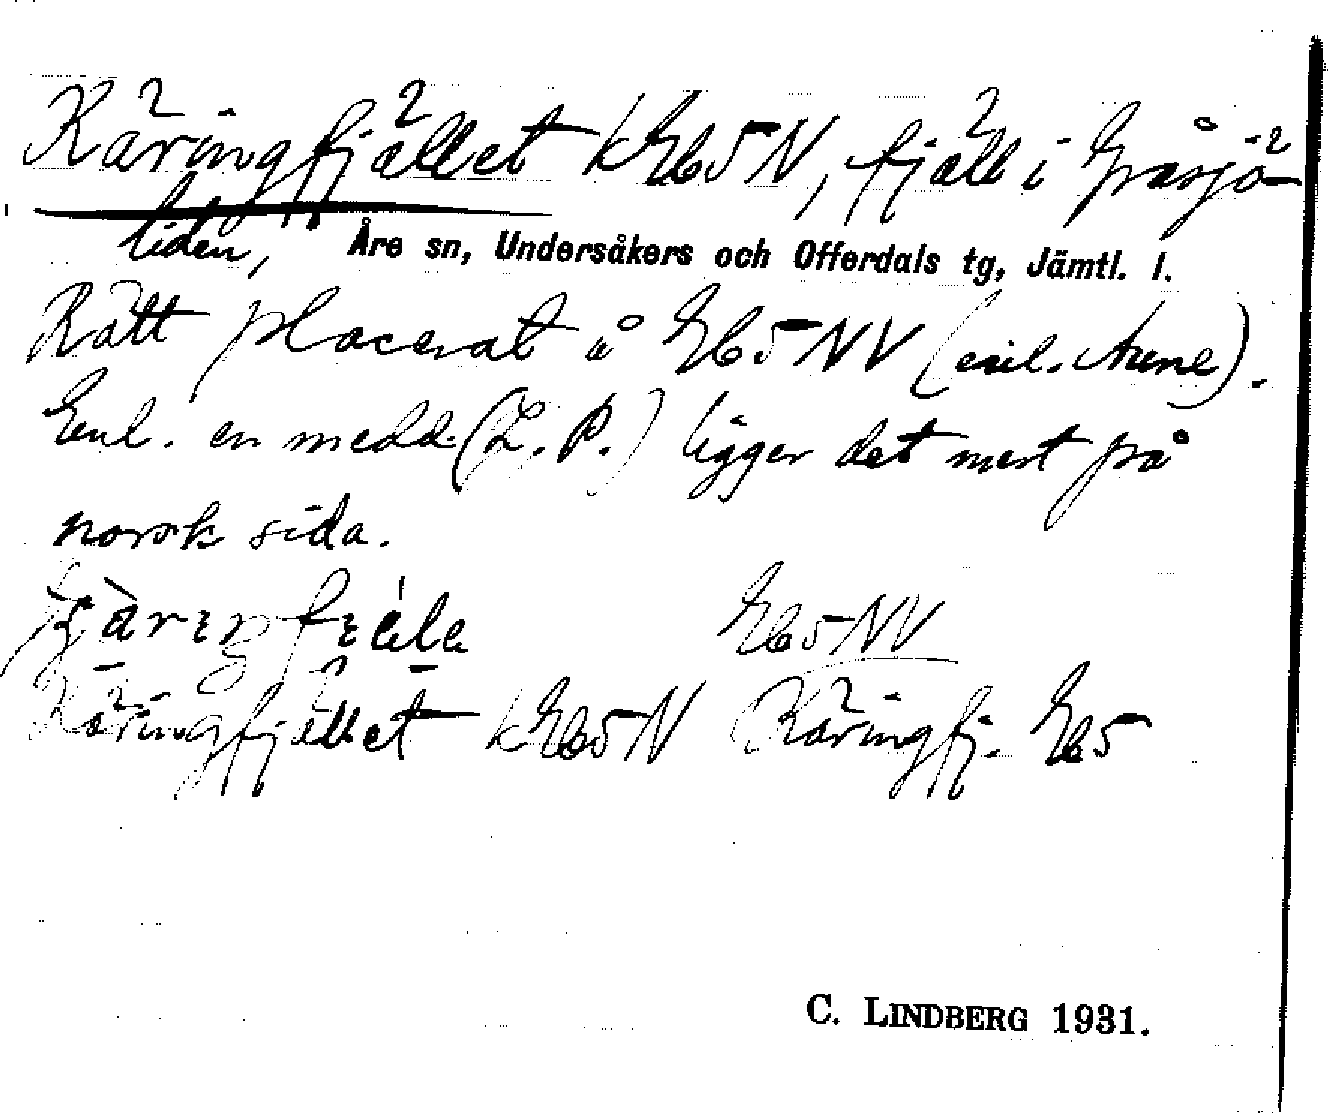 Käringfjället kGb5N, fjäll i Gråsjö-
liden, Åre sn, Undersåkers och Offerdals tg, Jämtl. l.
Rätt placerat å Gb5NV (enl. Aune).
Enl. en medd. (L. P.) ligger det mest på
norsk sida.
Gb5NV
Käringfjället kGb5N Käringfj. Gb5
C. LINDBERG 1931.